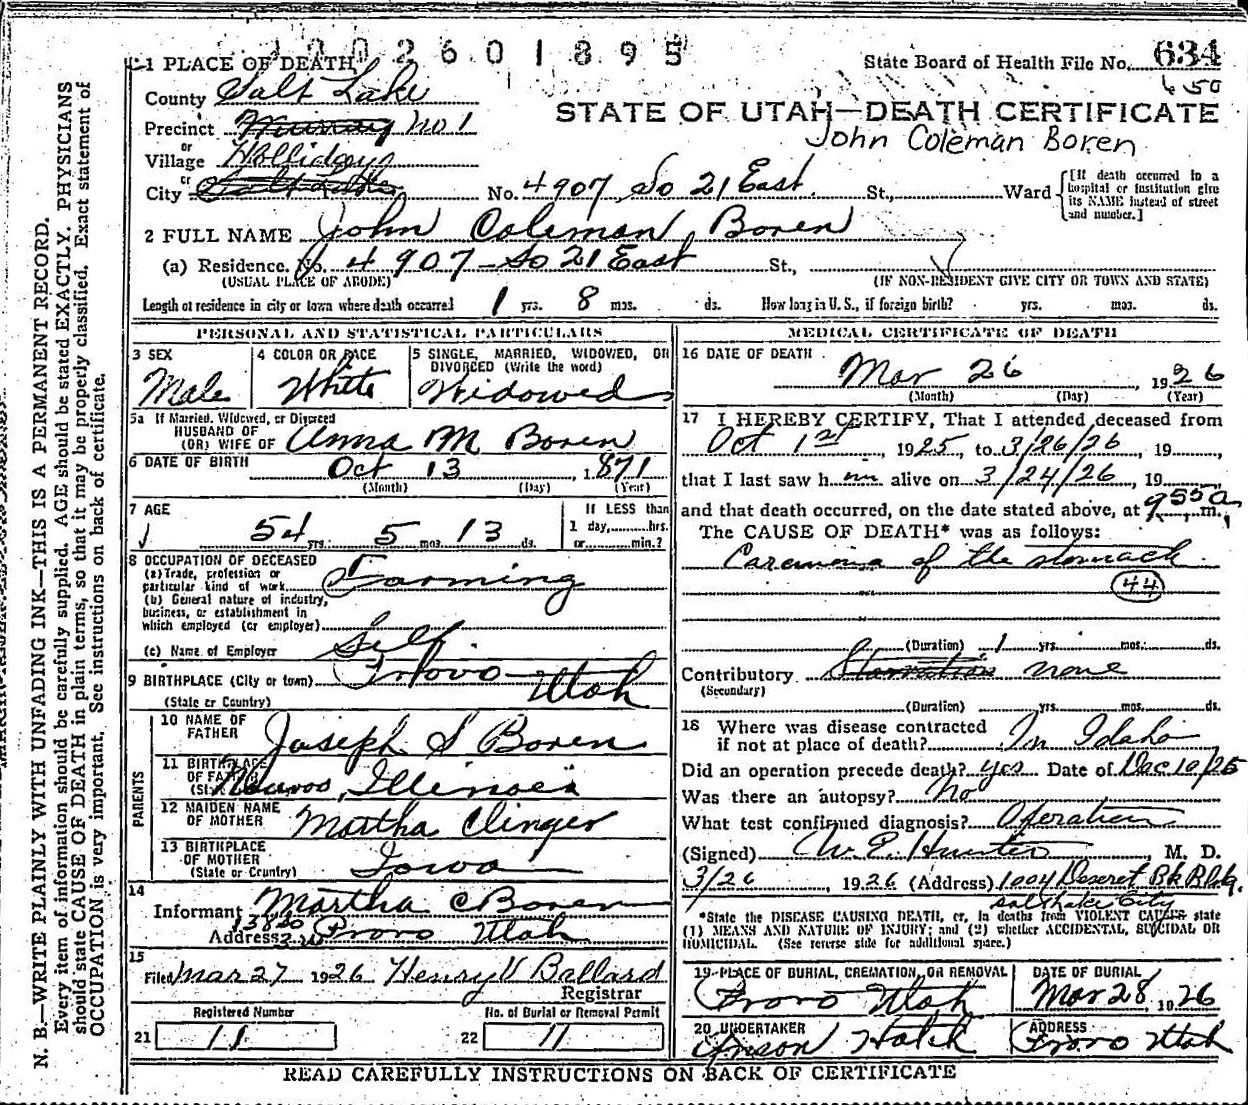 1002601895
1 PLACE OF DEATH
State Board of Health File No. 634
650
County Salt Lake
STATE OF UTAH—DEATH CERTIFICATE
Precinct Murray No 1
John Coleman Boren
or
Village Hollidays
or
City Salt Lake No. 4907 So 21 East St., Ward
[If death occurred in a hospital or institution give its NAME instead of street and number.]
2 FULL NAME John Coleman Boren
(a) Residence. No. 4907 - So 21 East St.,
(USUAL PLACE OF ABODE) (IF NON-RESIDENT GIVE CITY OR TOWN AND STATE)
Length of residence in city or town where death occurred 1 yrs. 8 mos. ds. How long in U. S., if foreign birth? yrs. mos. ds.
PERSONAL AND STATISTICAL PARTICULARS
3 SEX
Male
4 COLOR OR RACE
White
5 SINGLE, MARRIED, WIDOWED, OR DIVORCED (Write the word)
Widowed
5a If Married, Widowed, or Divorced
HUSBAND OF
(OR) WIFE OF Anna M Boren
6 DATE OF BIRTH Oct 13, 1871
(Month) (Day) (Year)
7 AGE
54 yrs. 5 mos. 13 ds.
If LESS than
1 day, hrs.
or min.?
8 OCCUPATION OF DECEASED
(a) Trade, profession or
particular kind of work Farming
(b) General nature of industry,
business, or establishment in
which employed (or employer)
(c) Name of Employer Self
9 BIRTHPLACE (City or town) Provo Utah
(State or Country)
PARENTS
10 NAME OF
FATHER Joseph S Boren
11 BIRTHPLACE
OF FATHER Nauvoo, Illinois
12 MAIDEN NAME
OF MOTHER Martha Clinger
13 BIRTHPLACE
OF MOTHER Iowa
(State or Country)
14
Informant Martha C Boren
Address Provo Utah
15
Filed Mar 27 1926 Henry V Ballard
Registrar
Registered Number
21 11
No. of Burial or Removal Permit
22 11
MEDICAL CERTIFICATE OF DEATH
16 DATE OF DEATH
Mar 26, 1926
(Month) (Day) (Year)
17 I HEREBY CERTIFY, That I attended deceased from
Oct 1st, 1925, to 3/26/26, 19
that I last saw h im alive on 3/24/26, 19
and that death occurred, on the date stated above, at 955a m.
The CAUSE OF DEATH* was as follows:
Carcinoma of the stomach
44
(Duration) 1 yrs. mos. ds.
Contributory Starvation none
(Secondary)
(Duration) yrs. mos. ds.
18 Where was disease contracted
if not at place of death? In Idaho
Did an operation precede death? yes Date of Dec 10/25
Was there an autopsy? No
What test confirmed diagnosis? Operation
(Signed) W. E. Hunter M. D.
3/26, 1926 (Address) 1004 Deseret Bk Bldg.
Salt Lake City
*State the DISEASE CAUSING DEATH, or, in deaths from VIOLENT CAUSES state
(1) MEANS AND NATURE OF INJURY; and (2) whether ACCIDENTAL, SUICIDAL OR
HOMICIDAL. (See reverse side for additional space.)
19 PLACE OF BURIAL, CREMATION, OR REMOVAL
Provo Utah
DATE OF BURIAL
Mar 28, 1926
20 UNDERTAKER
Anson Hatch
ADDRESS
Provo Utah
READ CAREFULLY INSTRUCTIONS ON BACK OF CERTIFICATE
N. B.—WRITE PLAINLY WITH UNFADING INK—THIS IS A PERMANENT RECORD.
Every item of information should be carefully supplied. AGE should be stated EXACTLY. PHYSICIANS
should state CAUSE OF DEATH in plain terms, so that it may be properly classified. Exact statement of
OCCUPATION is very important. See instructions on back of certificate.